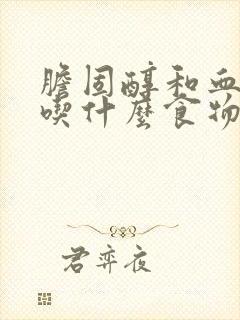 膽固醇和血
喫什麼食物
君弈夜